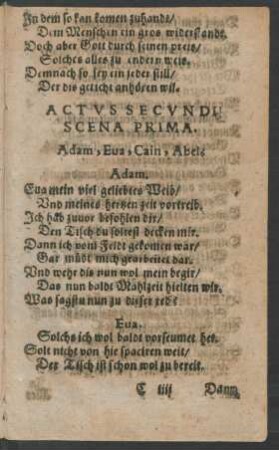 In dem so kan komen zuhandt/
Dem Menschen ein gros widerstandt.
Doch aber Gott durch seinen preis/
Solches alles zu endern weis.
Demnach so sey ein jeder still/
Der dis geticht anhören wil.
ACTVS SECVNDI,
SCENA PRIMA.
Adam, Eua, Cain, Abel.
Adam.
Eua mein viel geliebtes Weib/
Vnd meines hertzen zeit vortreib.
Ich hab zuuor befohlen dir/
Den Tisch du soltest decken mir.
Dann ich vom Feldt gekomen war/
Gar müdt mich gearbeitet dar.
Vnd wehr dis nun wol mein begir/
Das nun baldt Mahlzeit hielten wir.
Was sagstu nun zu dieser red?
Eua.
Solchs ich wol baldt vorseumet het.
Solt nicht von hie spaciren weit/
Der Tisch ist schon wol zu bereit.
C iiij Dann